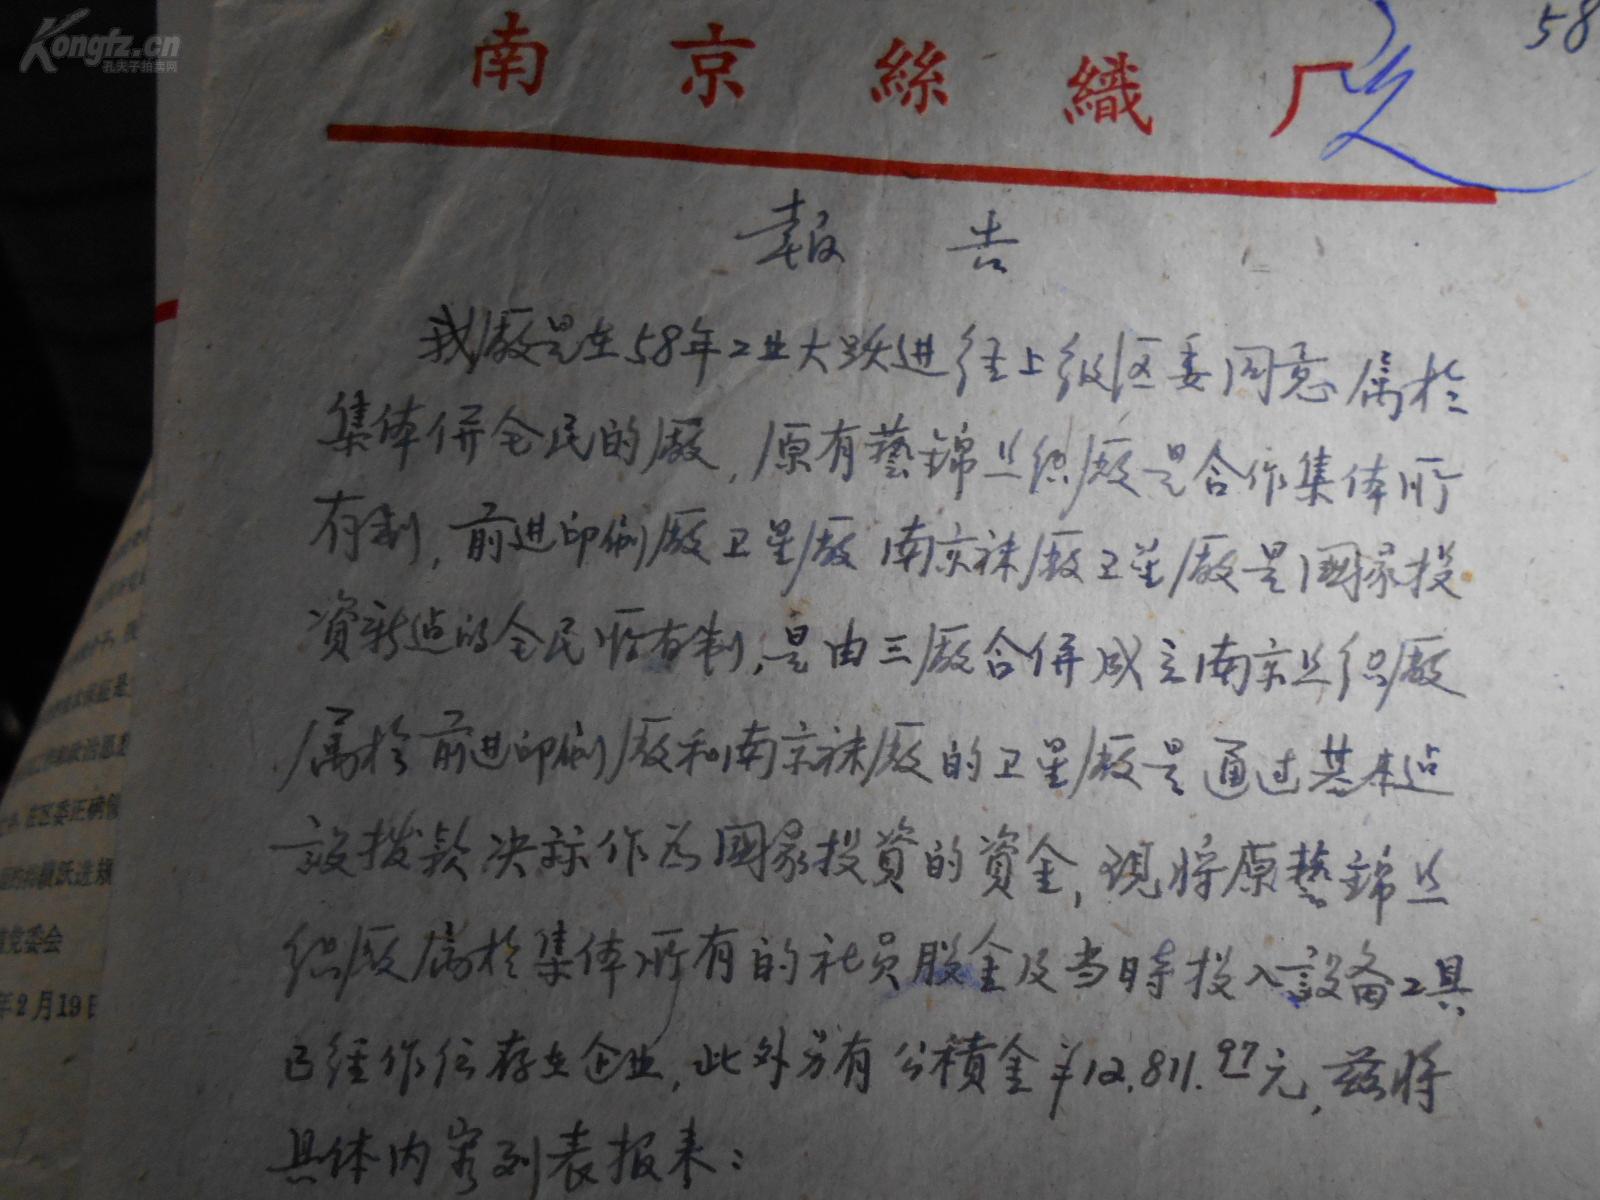 Kongfz.cn
孔夫子拍卖网
58
南京絲織厂
報告
我厰是在58年工业大跃进经上级区委同意属於
集体併全民的厰，原有藝錦丝织厰是合作集体所
有制，前进印刷厰卫星厰南京袜厰卫星厰是国家投
资新造的全民所有制，是由三厰合併成立南京丝织厰
属於前进印刷厰和南京袜厰的卫星厰是通过基本造
設拨款决标作为國家投資的資金，现将原藝錦丝
织厰属於集体所有的社员股金及当时投入設备工具
已经作价存在企业，此外另有公積金￥12,811.97元，兹将
具体内容列表报来：
政治思想
在区委正确领
党委会
年2月19日